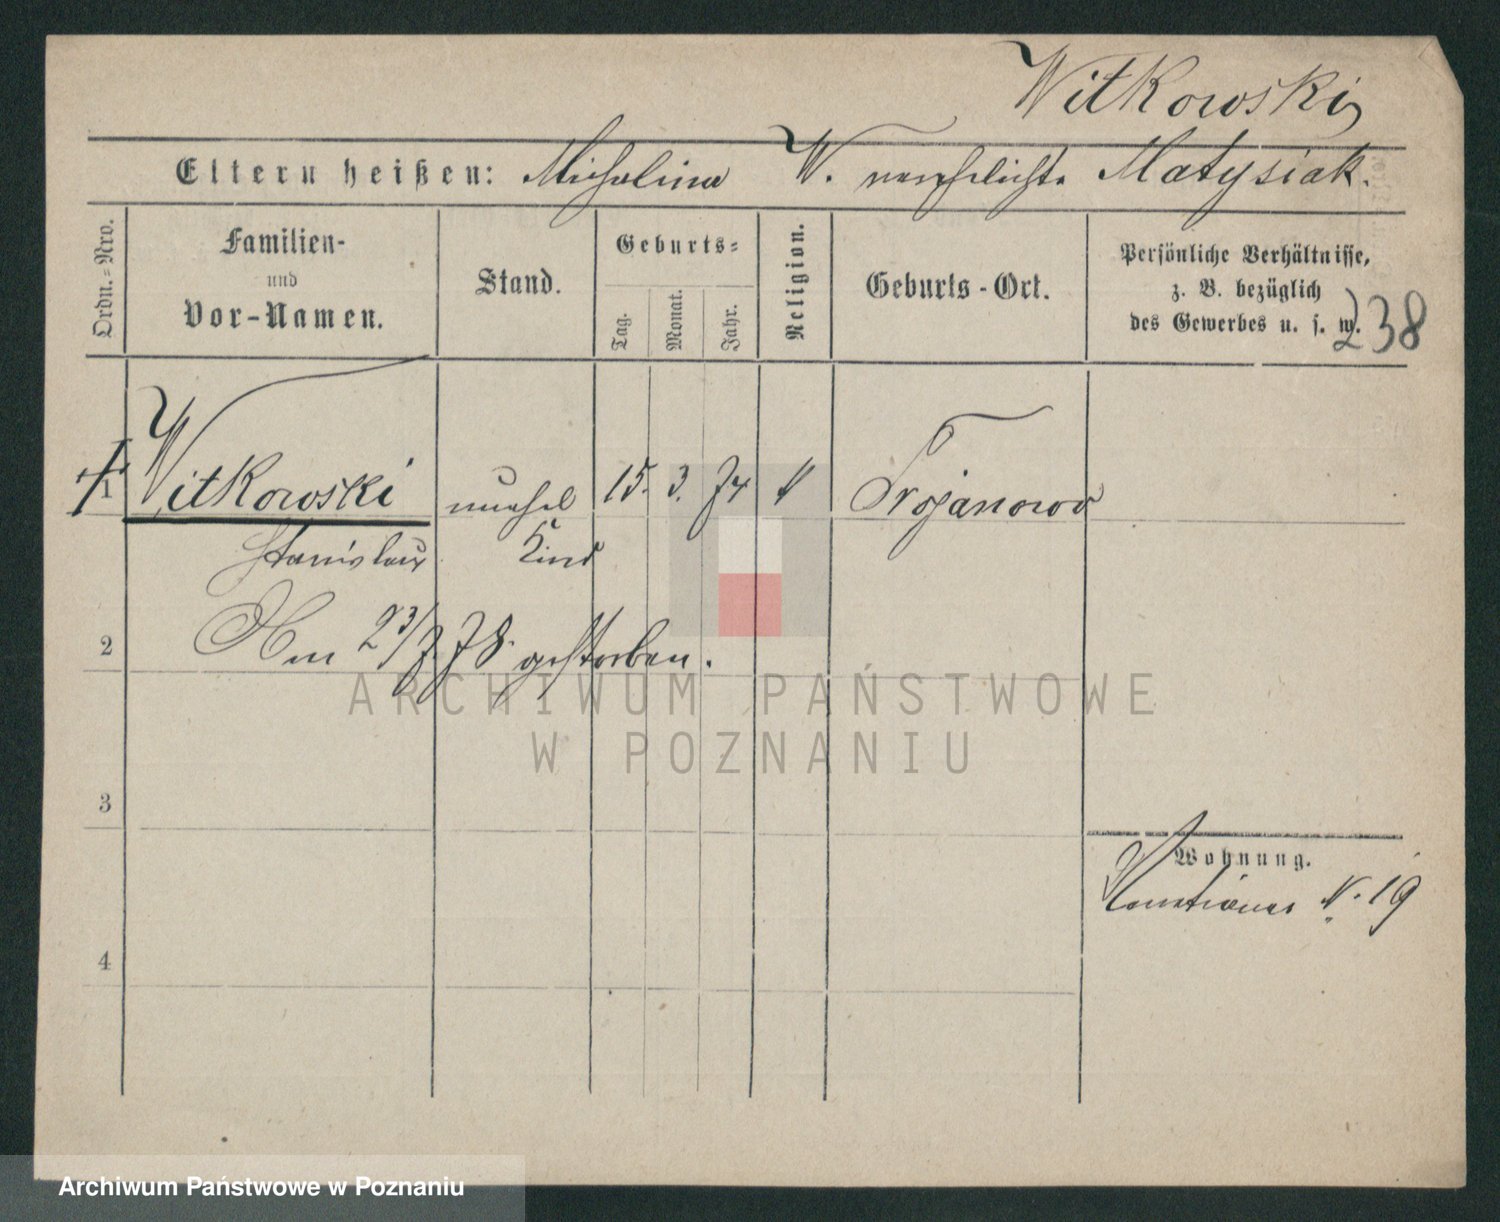 Witkowski
Eltern heißen: Michalina W. verehelichte Matysiak.
Ordn.=Nro.
Familien-
und
Vor-Namen.
Stand.
Geburts=
Tag.
Monat.
Jahr.
Religion.
Geburts-Ort.
Persönliche Verhältnisse,
z. B. bezüglich
des Gewerbes u. s. w.
238
1
Witkowski
Stanislaus
unehel
Kind
15. 3. 74
Trojanowo
2
Am 23/7. 78 gestorben.
3
4
Wohnung.
N. 19
ARCHIWUM PAŃSTWOWE
W POZNANIU
Archiwum Państwowe w Poznaniu